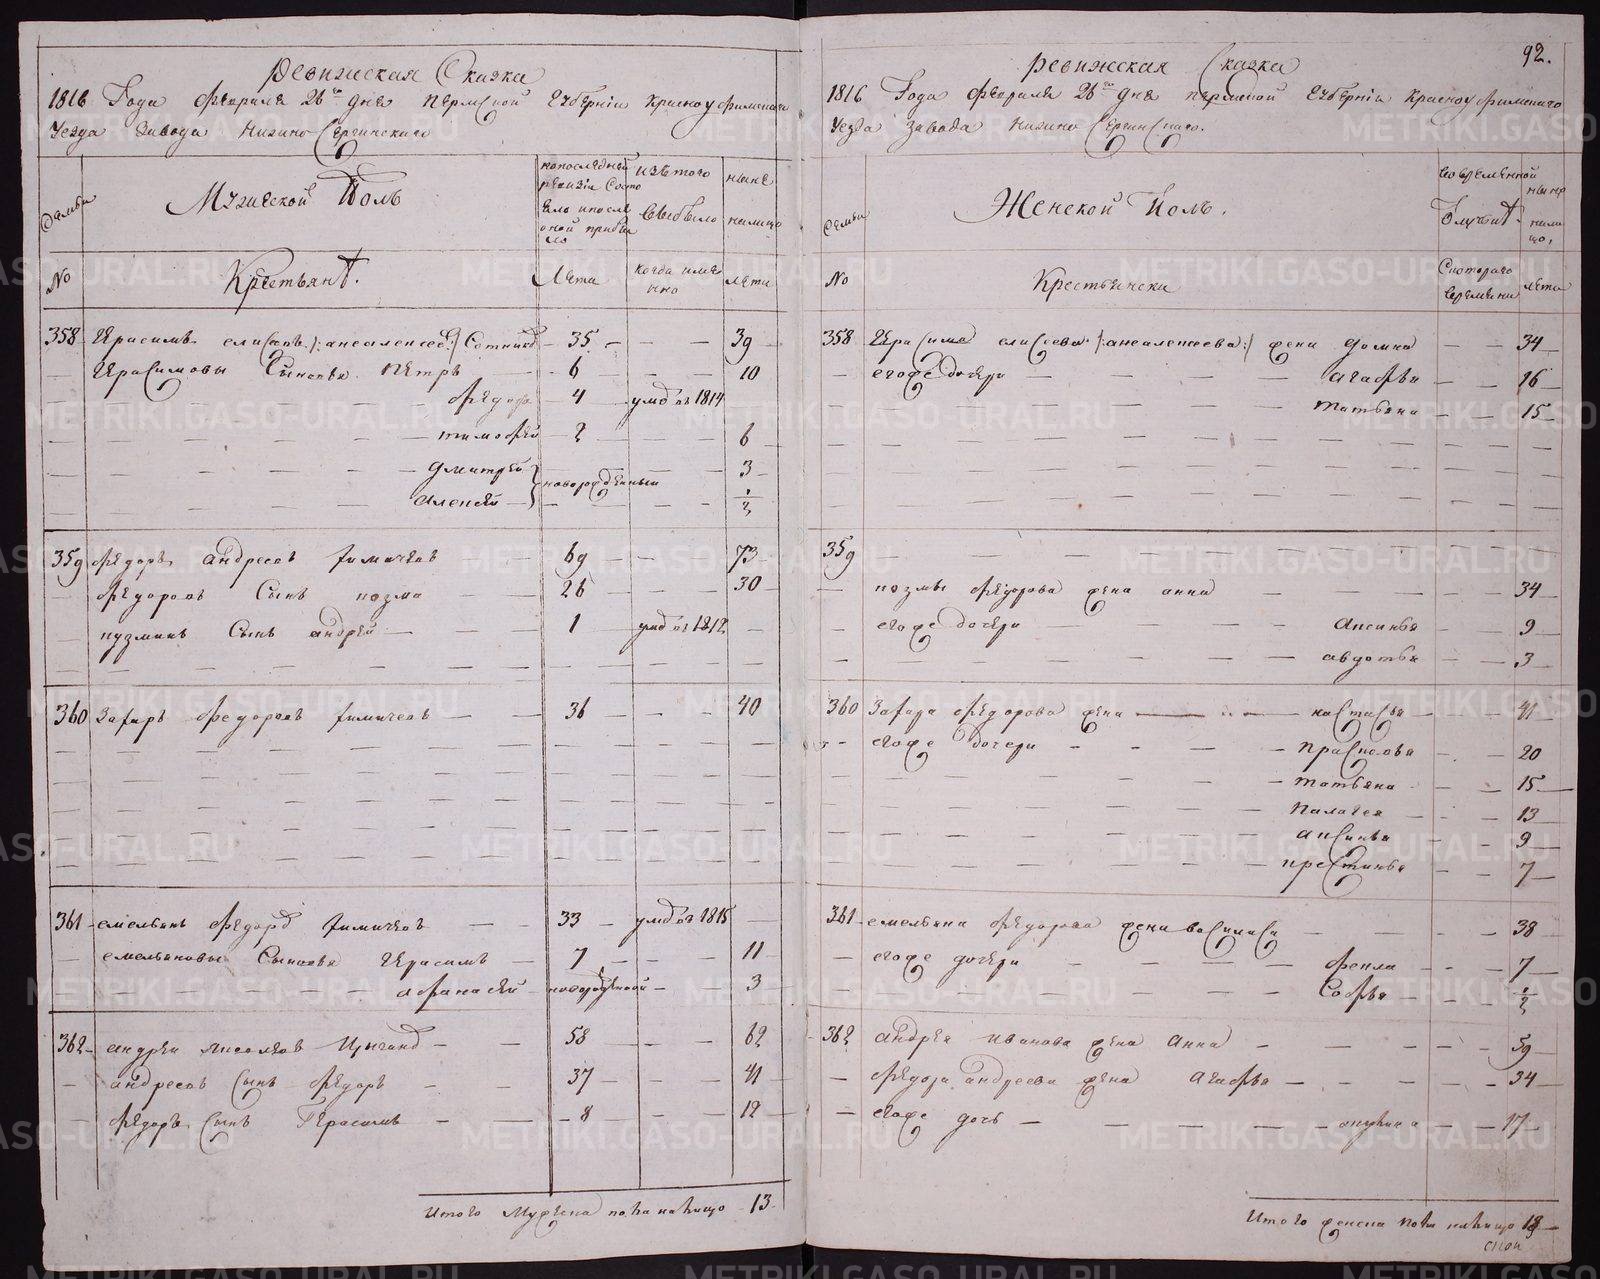 Ревижская Сказка
1816 Года Февраля 26 го дня Пермской Губернiи Красноуфимскаго
Уезда Завода Нижно Сергинскаго
Семьи
Мужеской Полъ
напоследней ревизiи Состо яло ипосле оной прибы ло
изътого выбыло
ныне налицо
No
Крестьянъ.
Лета
когда имя нно
лета
358 Герасимъ елисеевъ /: анеалексеевъ :/ Сотников 35 — — 39
Герасимовы Сыновья Петръ 6 — — 10
Федоръ 4 умре въ 1814
тимофей 2 — — 6
Дмитрей новорожденныи — 3
Алексей — 1/2
359 Федоръ андреевъ 69 — — 73
Федоровъ Сынъ козма 26 — — 30
кузминъ Сынъ андрей 1 умре въ 1812
360 Захаръ Федоровъ 36 — — 40
361 емельянъ Федоровъ 33 умре въ 1815
емельяновы Сыновья Герасимъ 7 — — 11
афанасей новорожденной — — 3
362 андреи Цыгановъ 58 — — 62
андреевъ Сынъ Федоръ 37 — — 41
Федоръ Сынъ Герасимъ 8 — — 12
Итого Мужеска пола налицо 13
92.
Ревижская Сказка
1816 Года Февраля 26 го дня пермской Губернiи Красноуфимскаго
Уезда Завода Нижно Сергинскаго.
Семьи
Женской Полъ.
вовременной отлучкъ.
ныне налицо,
No
Крестьянски
Скотораго времяни
лета
358 Герасима елисеева /: анеалексеева :/ жена домна — — 34
егоже дочери агафья — — 16
татьяна — — 15
359
козмы Федорова жена анна — — 34
егоже дочери аксинья — — 9
авдотья — — 3
360 Захара Федорова жена настасья — — 41
егоже дочери прасковья — — 20
татьяна — — 15
палагея — — 13
аксинья — — 9
престинья — — 7
361 емельяна Федорова жена василиса — — 38
егоже дочери фекла — — 7
Софья — — 1/2
362 андрея иванова жена анна — — 59
Федора андреева жена агафья — — 34
егоже дочь — — 17
Итого женска пола налицо 18
METRIKI.GASO-URAL.RU